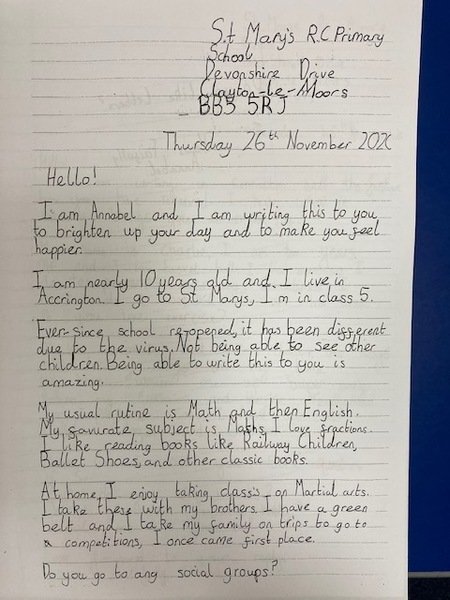 St Mary's R.C Primary
School
Devonshire Drive
Clayton-le-Moors
BB5 5RJ
Thursday 26th November 202
Hello!
I am Annabel and I am writing this to you
to brighten up your day and to make you feel
happier.
I am nearly 10 years old and I live in
Accrington. I go to St Marys, I'm in class 5.
Ever-since school re-opened, it has been different
due to the virus. Not being able to see other
children. Being able to write this to you is
amazing.
My usual rutine is Math and then English.
My favurate subject is Maths, I love fractions.
I like reading books like Railway Children,
Ballet Shoes, and other classic books.
At home, I enjoy taking classis on Martial arts.
I take these with my brothers. I have a green
belt and I take my family on trips to go to
competitions, I once came first place.
Do you go to any social groups?